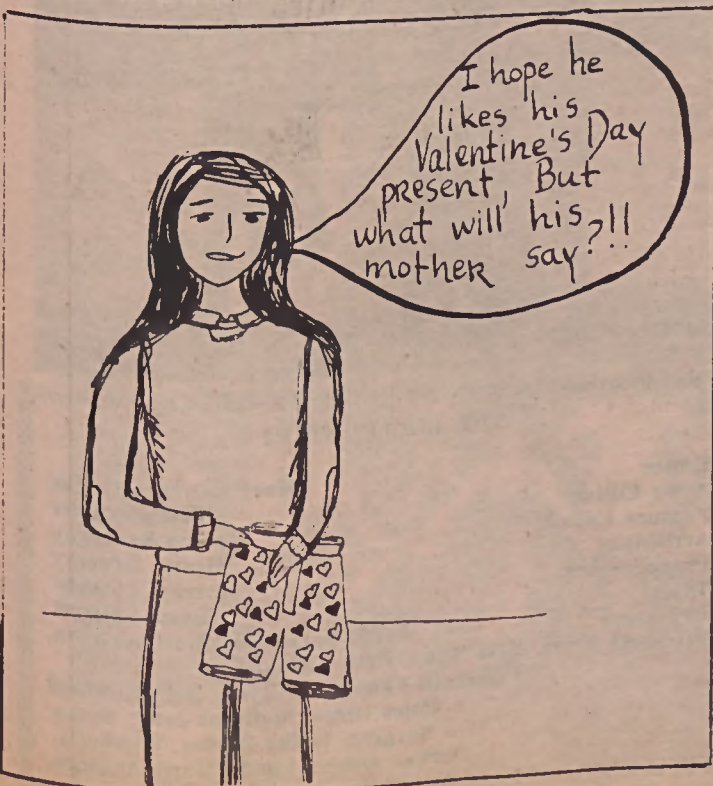 I hope he
likes his
Valentine's Day
present, But
what will his
mother say?!!